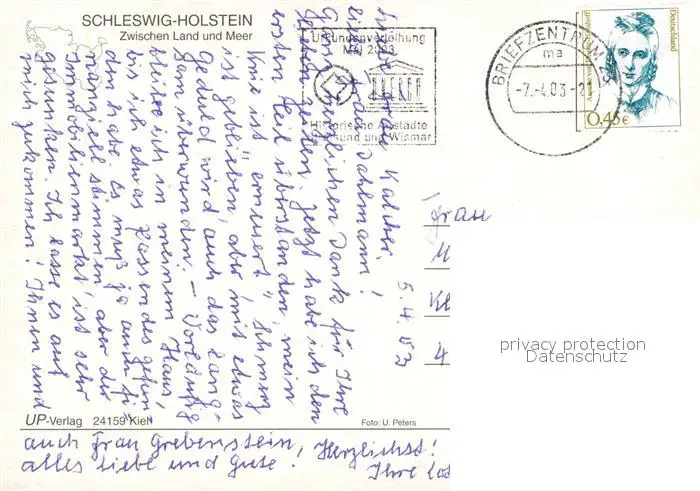 SCHLESWIG-HOLSTEIN
Zwischen Land und Meer
Urkundenverleihung
MAI 2003
UNESCO
Historische Altstädte
Stralsund und Wismar
BRIEFZENTRUM
ma
-7.-4.03-2
Deutschland
0,45€
5.4.03
Liebe Frau Kalcher,
Frau Dahlmann!
Dank für Ihre
Zeilen. Jetzt habe ich den
ersten Teil überstanden, mein
Knie ist erneuert, Schmerz
ist geblieben, aber mit etwas
Geduld wird auch das lang-
sam überwunden. – Vorläufig
bleibe ich in meinem Haus,
bis ich etwas passendes gefun-
den habe. Es muß ja auch fi-
nanziell stimmen, aber der
Immobilienmarkt ist sehr
gesunken. Ich lasse es auf
mich zukommen! Ihnen und
auch Frau Grebenstein, Herzlichst!
alles Liebe und Gute. Ihre
Frau
UP-Verlag 24159 Kiel
Foto: U. Peters
privacy protection
Datenschutz